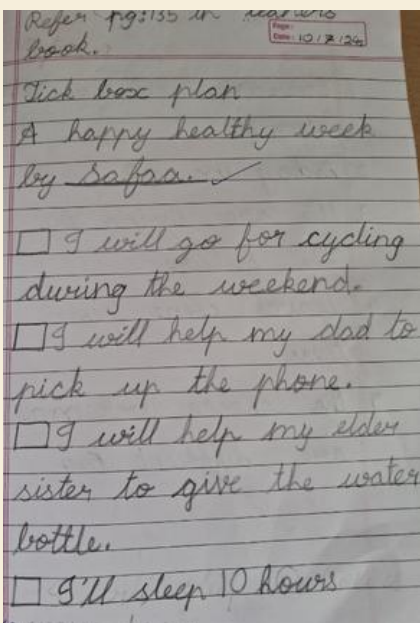 Refer pg:135 in learners
book.
Page:
Date: 10/7/24
Tick box plan
A happy healthy week
by Safaa.
I will go for cycling
during the weekend.
I will help my dad to
pick up the phone.
I will help my elder
sister to give the water
bottle.
I'll sleep 10 hours